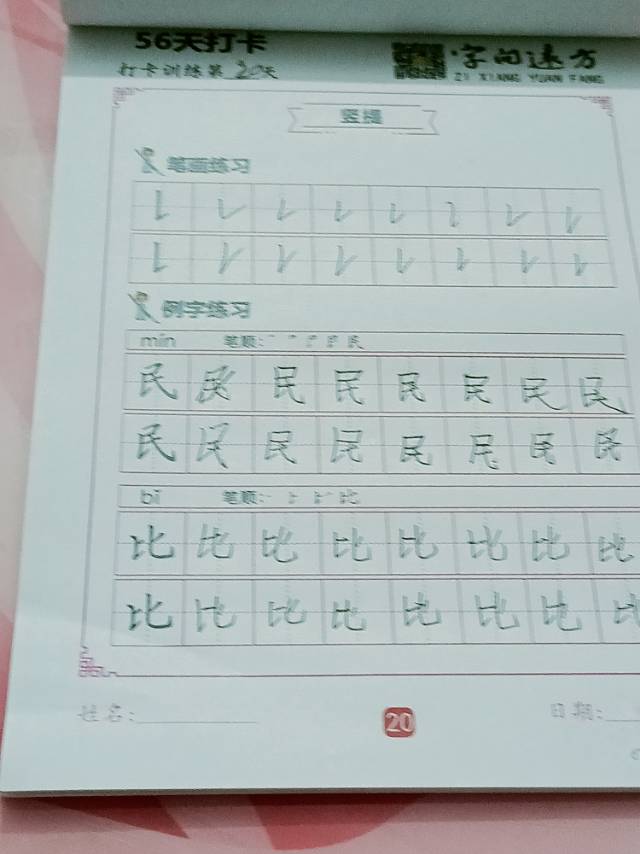 56天打卡
字向远方
打卡训练第20天
ZI XIANG YUAN FANG
竖提
笔画练习
例字练习
mín 笔顺:
民 民 民 民 民 民 民 民
民 民 民 民 民 民 民 民
bǐ 笔顺:
比 比 比 比 比 比 比 比
比 比 比 比 比 比 比 比
姓名: 日期:
20